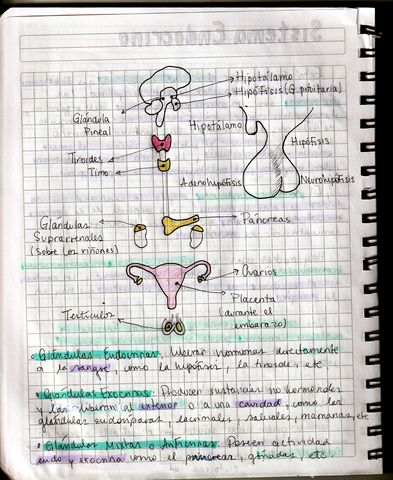 Sistema Endocrino
Hipotálamo
Hipófisis (G. pituitaria)
Glándula
Pineal
Hipotálamo
Hipófisis
Tiroides
Timo
Adenohipófisis
Neurohipófisis
Glándulas
Suprarrenales
(Sobre los riñones)
Páncreas
Ovarios
Placenta
(durante el
embarazo)
Testículos
Glándulas Endocrinas: Liberan hormonas directamente
a la sangre, como la hipófisis, la tiroides, etc.
• Glándulas Exocrinas: Producen sustancias no hormonales
y las liberan al exterior o a una cavidad, como las
glándulas sudoríparas, lacrimales, salivales, mamarias, etc
• Glándulas Mixtas o Anficrinas: Poseen actividad
endo y exocrina como el páncreas, gónadas, etc.